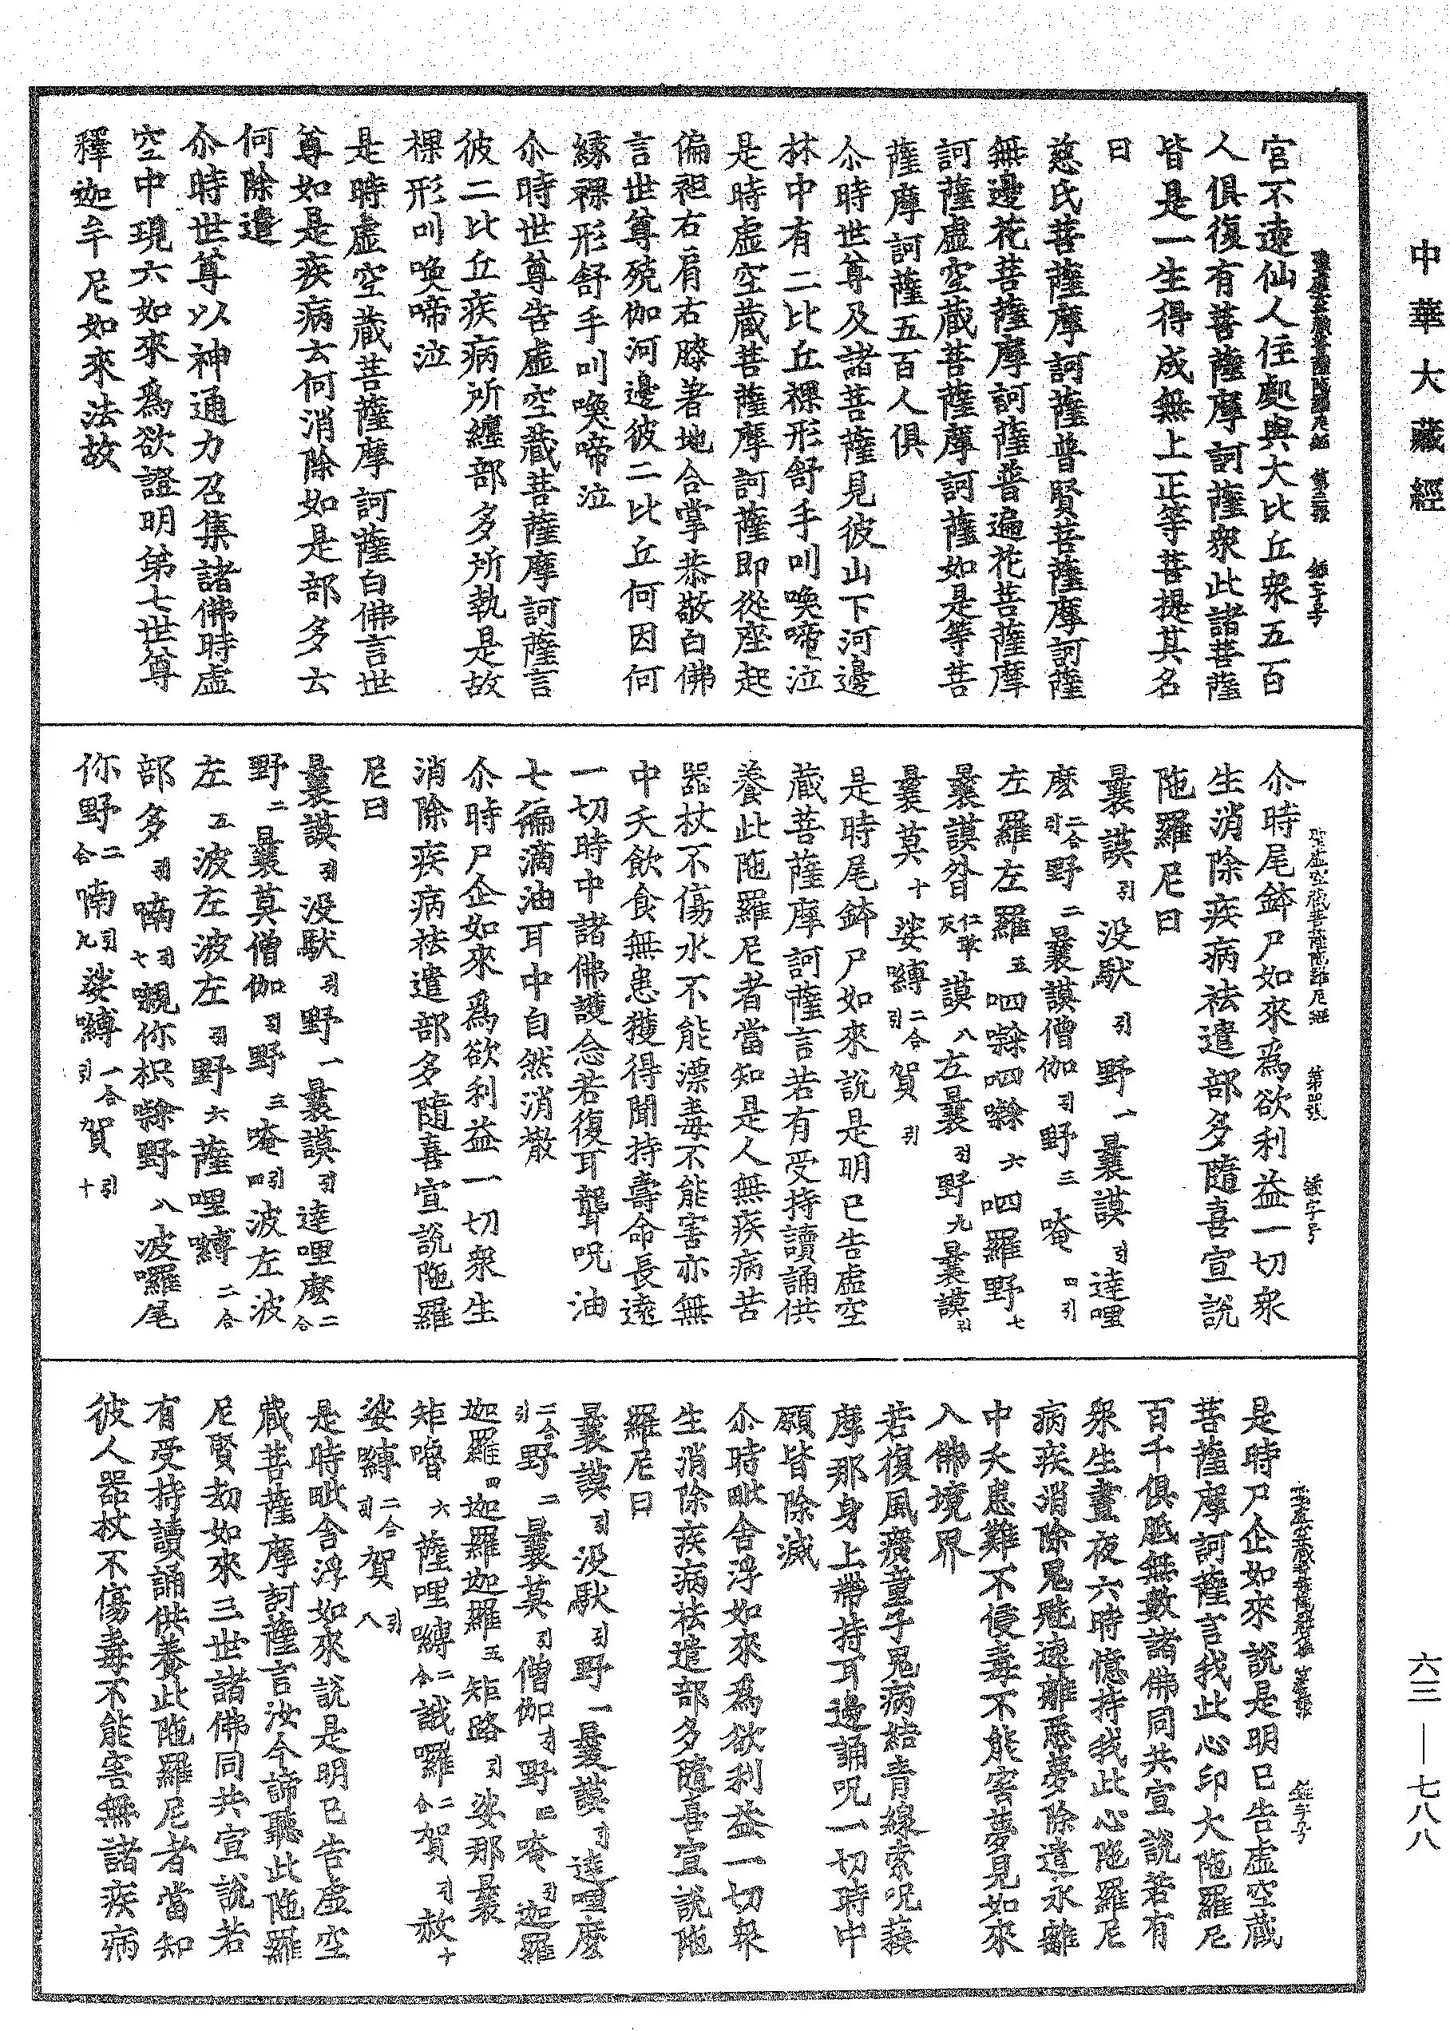 中華大藏經
官不遠仙人住處與大比丘衆五百
人俱復有菩薩摩訶薩衆此諸菩薩
皆是一生得成無上正等菩提其名
曰
慈氏菩薩摩訶薩普賢菩薩摩訶薩
無邊花菩薩摩訶薩普遍花菩薩摩
訶薩虛空藏菩薩摩訶薩如是等菩
薩摩訶薩五百人俱
尒時世尊及諸菩薩見彼山下河邊
林中有二比丘裸形舒手叫喚啼泣
是時虛空藏菩薩摩訶薩即從座起
偏袒右肩右膝著地合掌恭敬白佛
言世尊殑伽河邊彼二比丘何因何
緣裸形舒手叫喚啼泣
尒時世尊告虛空藏菩薩摩訶薩言
彼二比丘疾病所纏部多所執是故
裸形叫喚啼泣
是時虛空藏菩薩摩訶薩白佛言世
尊如是疾病云何消除如是部多云
何除遣
尒時世尊以神通力召集諸佛時虛
空中現六如來爲欲證明第七世尊
釋迦牟尼如來法故
尒時尾鉢尸如來爲欲利益一切衆
生消除疾病祛遣部多隨喜宣說
陁羅尼曰
曩謨引没馱引野一曩謨引達哩
麽二合引野二曩謨僧伽引野三唵四引
左羅左羅五呬㘑呬㘑六呬羅野七
曩謨䇓仁敢反謨八左曩引野九曩謨引
曩莫十娑嚩二合引賀引
是時尾鉢尸如來說是明已告虛空
藏菩薩摩訶薩言若有受持讀誦供
養此陁羅尼者當知是人無疾病苦
器杖不傷水不能漂毒不能害亦無
中夭飲食無患獲得聞持壽命長遠
一切時中諸佛護念若復耳聾呪油
七徧滴油耳中自然消散
尒時尸企如來爲欲利益一切衆生
消除疾病祛遣部多隨喜宣說陁羅
尼曰
曩謨引没馱引野一曩謨引達哩麽二合
野二曩莫僧伽引野三唵四引波左波
左五波左波左引野六薩哩嚩二合
部多引喃引七覩你枳㘑野八波囉尾
你野二合喃引九娑嚩二合引賀引十
是時尸企如來說是明已告虛空藏
菩薩摩訶薩言我此心印大陁羅尼
百千俱胝無數諸佛同共宣說若有
衆生晝夜六時憶持我此心陁羅尼
病疾消除鬼魅遠離惡夢除遣永離
中夭患難不侵毒不能害夢見如來
入佛境界
若復風癀童子鬼病結青線索呪蘓
摩那身上帶持耳邊誦呪一切時中
願皆除滅
尒時毗舍浮如來爲欲利益一切衆
生消除疾病祛遣部多隨喜宣說陁
羅尼曰
曩謨引没馱引野一曩謨引達哩麽
二合引野二曩莫引僧伽引野三唵引迦羅
迦羅四迦羅迦羅五矩路引娑那曩
矩嚕六薩哩嚩二合誐囉二合賀引赦十
娑嚩二合引賀引八
是時毗舍浮如來說是明已告虛空
藏菩薩摩訶薩言汝今諦聽此陁羅
尼賢劫如來三世諸佛同共宣說若
有受持讀誦供養此陁羅尼者當知
彼人器杖不傷毒不能害無諸疾病
六三—七八八